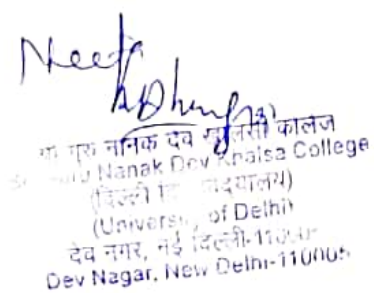 Neeta
गुरु नानक देव खालसा कालेज
Nanak Dev Khalsa College
(दिल्ली
(University of Delhi)
देव नगर, नई दिल्ली-
Dev Nagar, New Delhi-110005